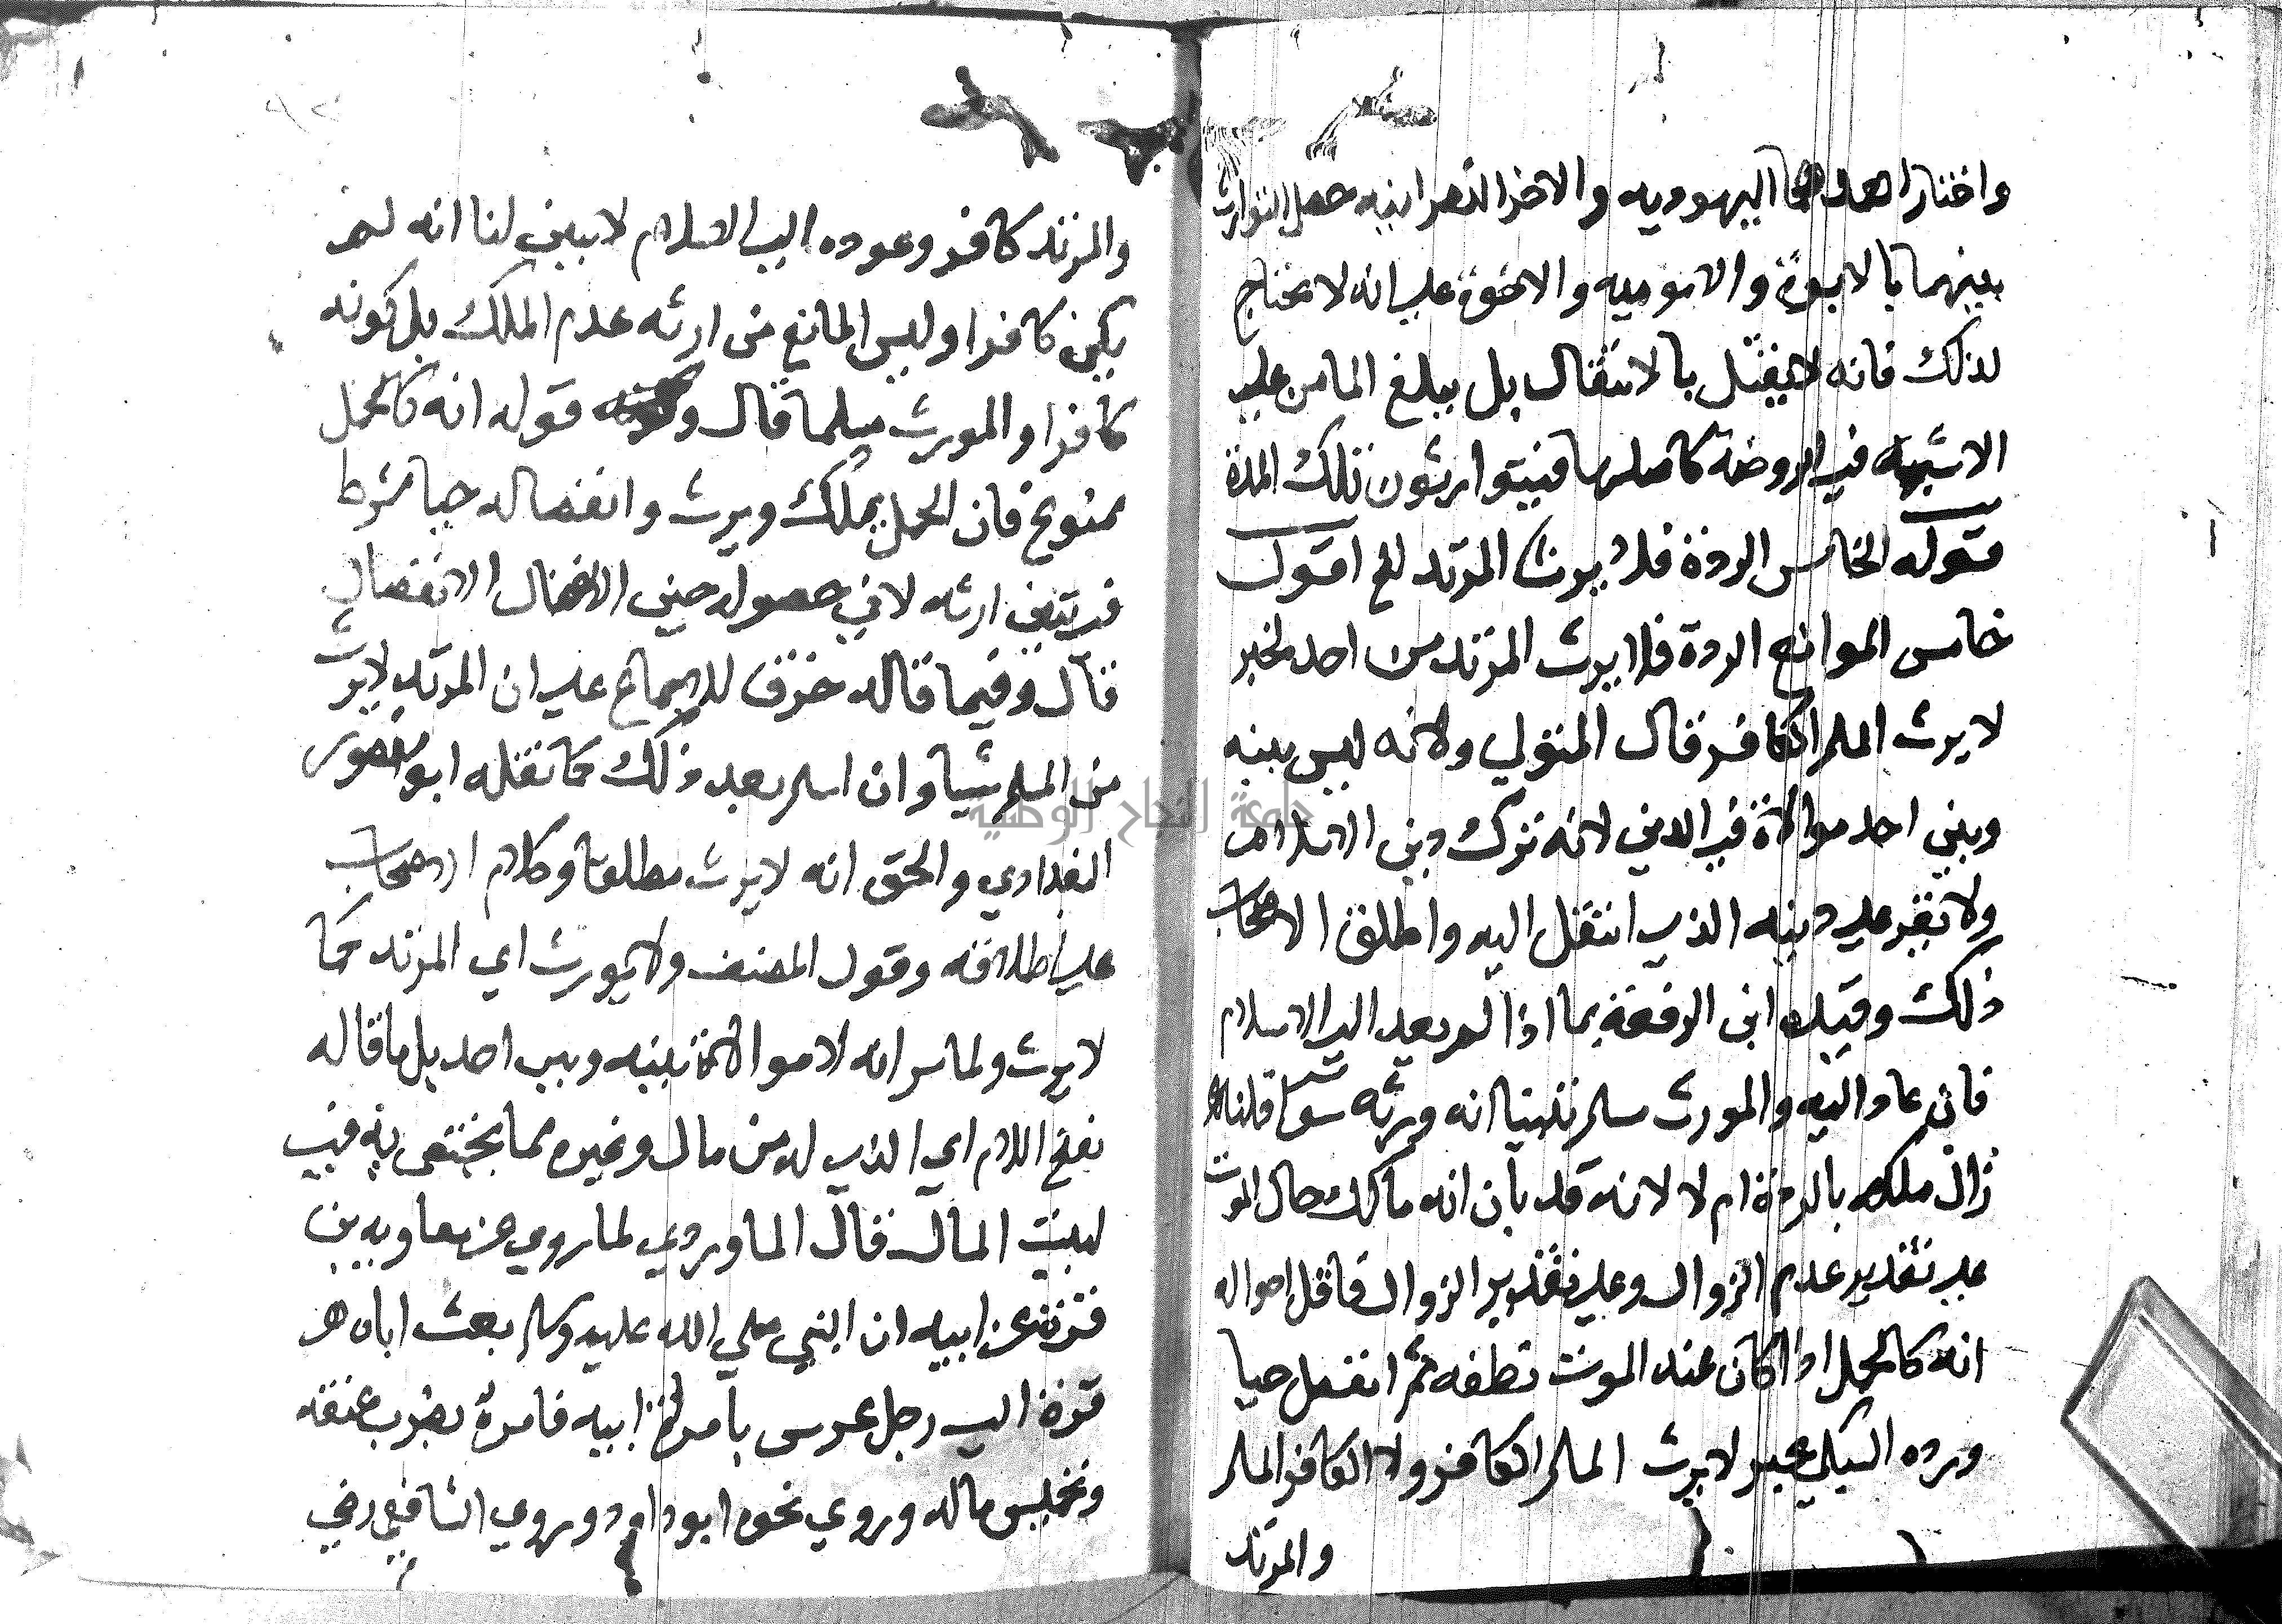 واختار احدهما اليهوديه والاخر النصرانيه حصل التوارث
بينهما بالابوة والاموميه والاخوة علي انه لا يحتاج
لذلك فانه لا يقتل بالانتقال بل يبلغ المامن علي
الاشبه في الروضة كاصلها فيتوارثون تلك المدة
قوله الخامس الردة فلا يرث المرتد الخ اقول
خامس الموانع الردة فلا يرث المرتد من احد لخبر
لا يرث المسلم الكافر قال المتولي ولانه ليس بينه
وبين احد موالاة في الدين لانه ترك دين الاسلام
ولا يقر علي دينه الذي انتقل اليه واطلق الاصحاب
ذلك وقيده ابن الرفعة بما اذا لم يعد الي الاسلام
فان عاد اليه والمورث مسلم تبينا انه ورثه سوا قلنا
زال ملكه بالردة ام لا لانه قد بان انه مالك حال الموت
علي تقدير عدم الزوال وعلي تقدير الزوال فاقل احواله
انه كالحمل اذا كان عند الموت نطفه ثم انفصل حيا
ورده السبكي بخبر لا يرث المسلم الكافر ولا الكافر المسلم
والمرتد
والمرتد كافر وعوده الي الاسلام لا يبين لنا انه لم
يكن كافرا وليس المانع من ارثه عدم الملك بل كونه
كافرا والمورث مسلما قال و قوله انه كالحمل
ممنوع فان الحمل يملك ويرث وانفصاله حيا شرط
فيتبين ارثه لا في حصوله حين الانفصال
قال وفيما قاله خرق للاجماع علي ان المرتد لا يرث
من المسلم شيا وان اسلم بعد ذلك كما نقله ابو منصور
البغدادي والحق انه لا يرث مطلقا وكلام الاصحاب
علي اطلاقه وقول المصنف ولا يورث اي المرتد كما
لا يرث ولما مر انه لا موالاة بينه وبين احد بل ما قاله
بفتح اللام اي الذي له من مال وغيره مما يختص به في
لبيت المال قال الماوردي لما روي عن معاويه بن
قرة عن ابيه ان النبي صلي الله عليه وسلم بعث اباه هو
قرة الي رجل عرس بامراة ابيه فامره بضرب عنقه
وتخميس ماله وروي نحوه ابو داود وروي الشافعي رضي
جامعة النجاح الوطنية